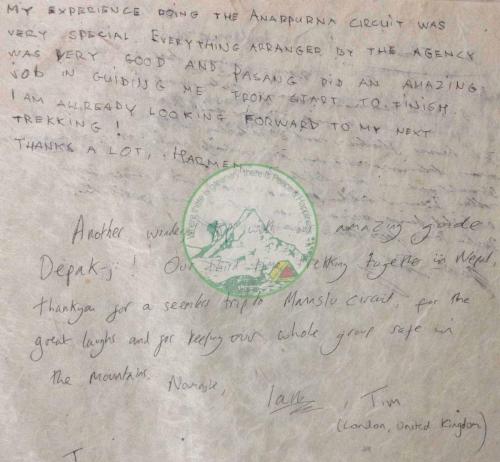 MY EXPERIENCE DOING THE ANAPPURNA CIRCUIT WAS
VERY SPECIAL. EVERYTHING ARRANGED BY THE AGENCY
WAS VERY GOOD AND PASANG DID AN AMAZING
JOB IN GUIDING ME FROM START TO FINISH
I AM ALREADY LOOKING FORWARD TO MY NEXT
TREKKING!
THANKS A LOT, HARMEN
Another with amazing guide
Depak ! Our third trekking together in Nepal,
thankyou for a trip to Manslu Circuit, for the
great laughs and for keeping our whole group safe in
the mountains. Namaste,
, Tim
(London, United Kingdom)